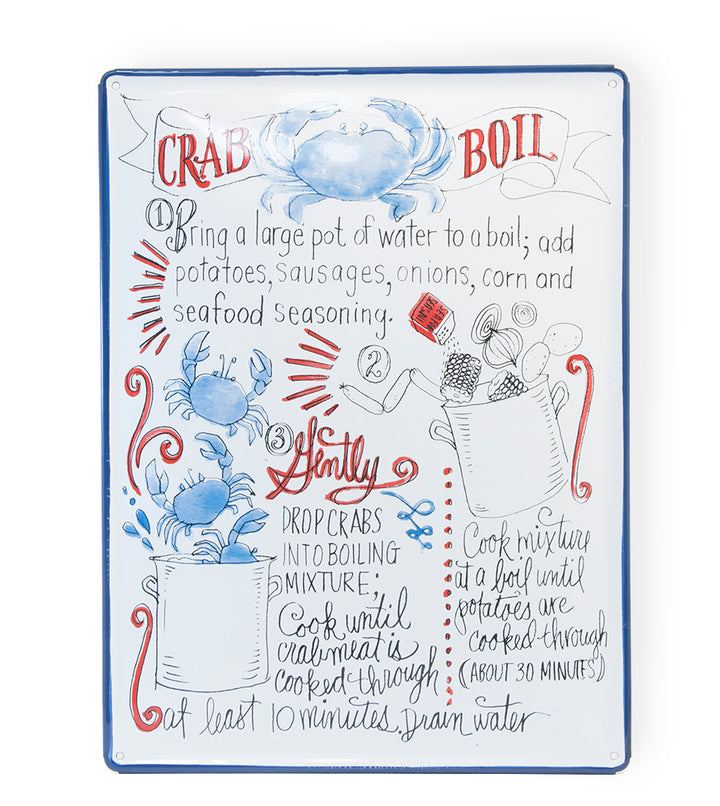 CRAB BOIL
1. Bring a large pot of water to a boil; add
potatoes, sausages, onions, corn and
seafood seasoning.
SEAFOOD
SEASON
2
Cook mixture
at a boil until
potatoes are
cooked through
(ABOUT 30 MINUTES)
3
Gently
DROP CRABS
INTO BOILING
MIXTURE;
Cook until
crabmeat is
cooked through
at least 10 minutes. Drain water